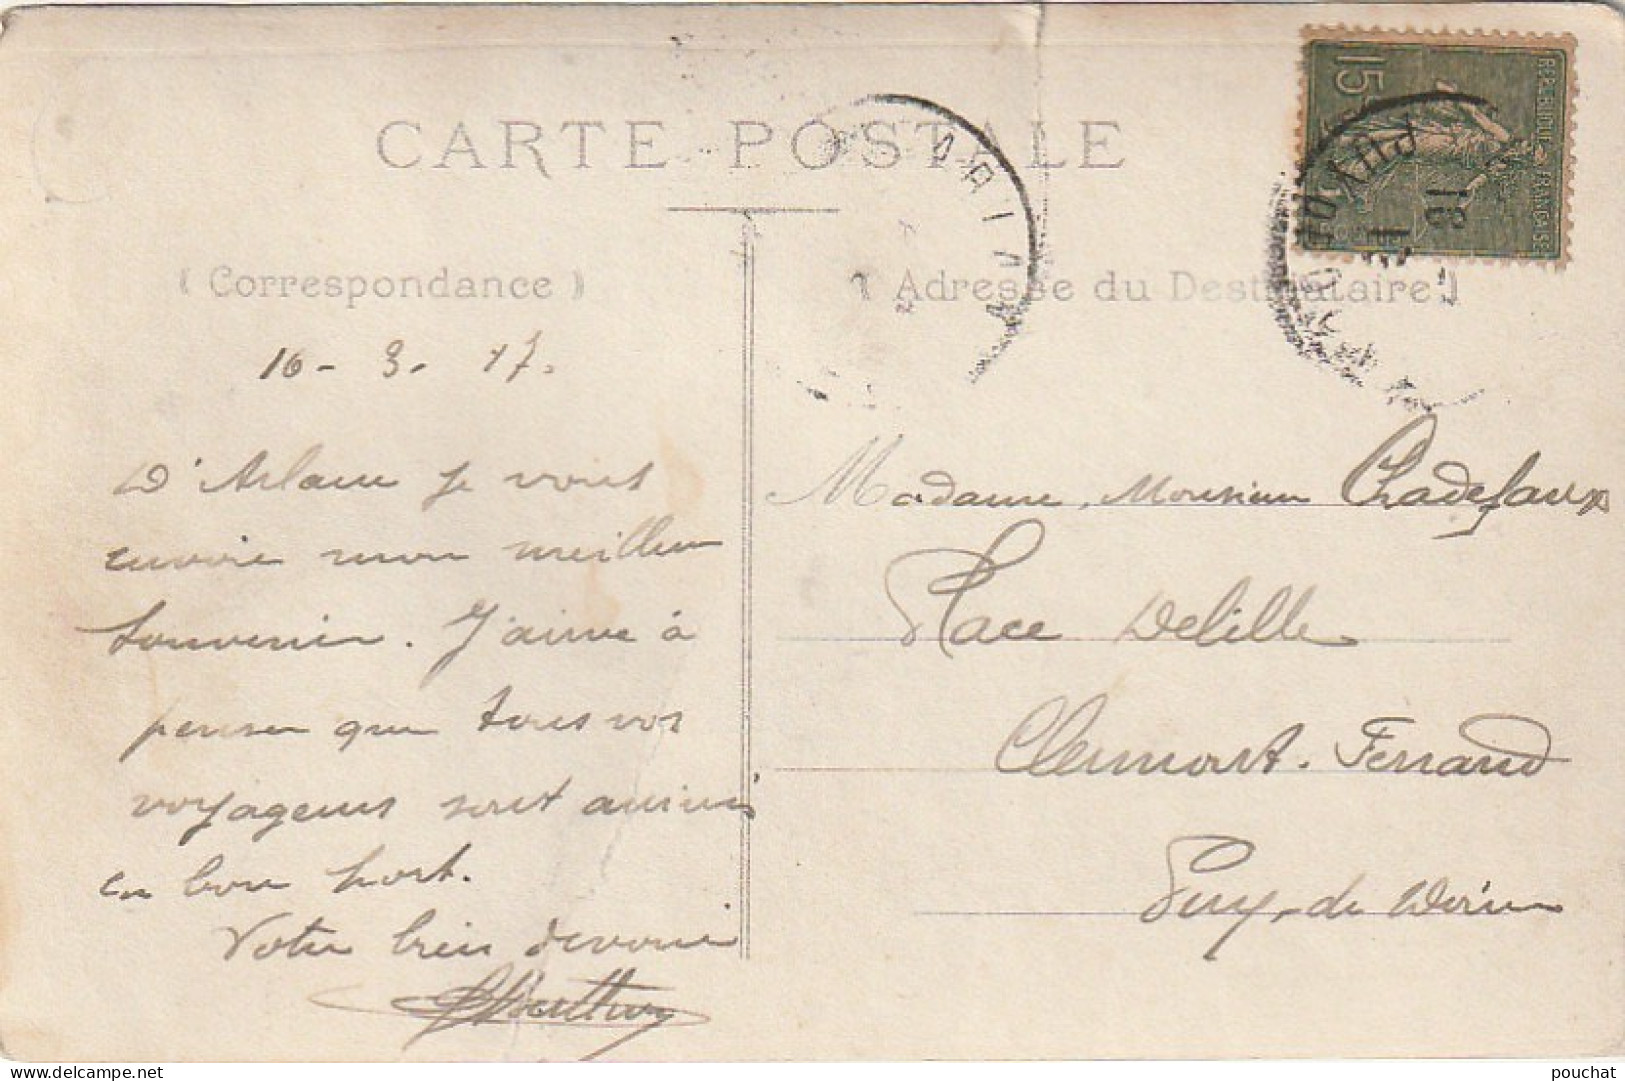 CARTE POSTALE
( Correspondance )
Adresse du Destinataire )
15c
REPUBLIQUE FRANÇAISE
PUY
16 - 3. 17.
D'Arlanc je vous
envoie mon meilleur
souvenir. J'aime à
penser que tous vos
voyageurs sont arrivés
en bon port.
Votre bien dévoué
Madame, Monsieur Chadefaux
Place Delille
Clermont-Ferrand
Puy-de-Dôme
pouchat